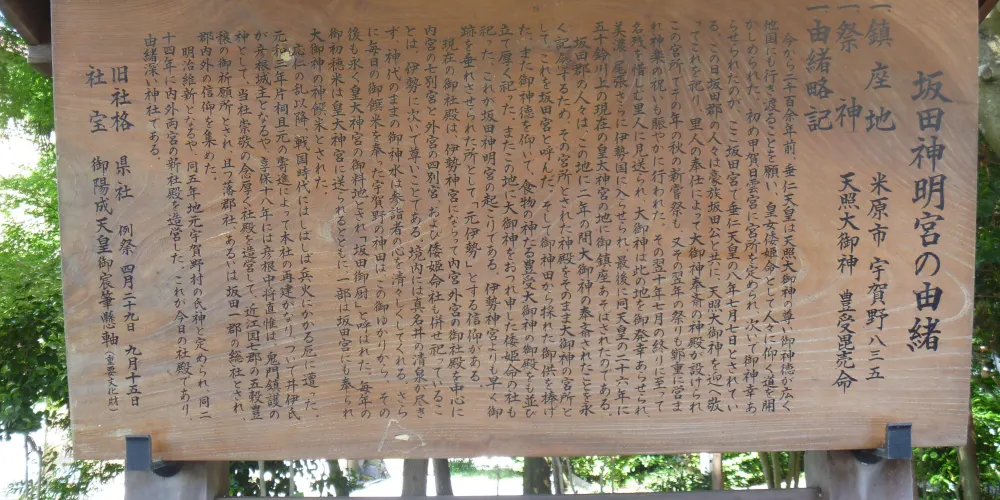 坂田神明宮の由緒
一鎮座地 米原市宇賀野八三五
一祭神 天照大御神 豊受毘売命
一由緒略記
今から二千百余年前、垂仁天皇は天照大御神の尊い御神徳が広く
他国にも行き渡ることを願い、皇女倭姫命として人々に仰ぐ道を開
かせられたのが、初め甲賀日雲宮に宮所を定められ、次いで御神幸あ
らせられたのが、ここ坂田宮で垂仁天皇の八年七月七日とされてい
る。この日坂田郡の人々は豪族坂田公と共に、天照大御神を迎え敬
これを祀り、里人の奉仕によって大御神奉斎の神殿が設けられ
この宮所でその年の秋の新嘗祭も、又その立春の祭りも鄭重に営ま
れ神楽の祝いも賑やかに行われた。その翌十年七月の終りに至って
名残を惜しむ里人に見送られ、大御神は此の地を御発幸あらせられ、
美濃、尾張さらに伊勢国に入らせられ、最後に同天皇の二十六年に
五十鈴川上の現在の皇大神宮の地に御鎮座あそばされたのである。
坂田郡の人々は、この地に二年の間大御神の奉斎されたことを永
く記念するため、その宮所とされた神殿をそのまま大御神の宮所と
して、これを坂田宮と呼んだ。そして御神田から採れた御供を捧げ
た。また御神徳を仰いで、食物の神たる豊受大御神の御社殿をも並び
立て厚く祀った。またこの地に大御神をお祀り申した倭姫命の社も
祀った。これが坂田神明宮の起こりである。伊勢神宮よりも早く御
跡を垂れさせられた所として「元伊勢」とする信仰がある。
現在の御社殿は、伊勢神宮にそって内宮外宮の御社殿を中心に
内宮の七別宮と外宮の四別宮、および倭姫命社も併せ祀っているこ
とは、伊勢に次いで尊いことである。境内には真名井の清泉が尽き
ず、神代のままの御神水は参詣者の心を清々しくしてくれる。さら
に毎日の御饌米を奉った宇賀野の神田はこの御ゆかりから、その
後も永く皇大神宮の御料地として、坂田御厨と呼ばれた。毎年の
御初穂米は皇大神宮に送られるとともに、一部は坂田宮にも奉られ
大御神の神饌米とされた。
応仁の乱以降、戦国時代にはしばしば兵火にかかる厄に遭った。
元和三年片桐且元の寄進によって本社の再建がなり、ついで井伊氏
が彦根城主となるや、享保十八年には彦根中将直惟は、鬼門鎮護の
神として、当社崇敬の念厚く社殿を造営して、近江国七郡の五穀豊
穣の御祈願所とされ、且つ藩郡社、あるいは坂田一郡の総社とされ、
郡内外の信仰を集めた。
明治維新となるや、同五年地元宇賀野村の氏神と定められ、同二
十四年に内外両宮の新社殿を造営した。これが今日の社殿であり、
由緒深い神社である。
旧社格 県社 例祭 四月二十九日 九月十五日
社宝 御陽成天皇御宸筆懸軸(重要文化財)